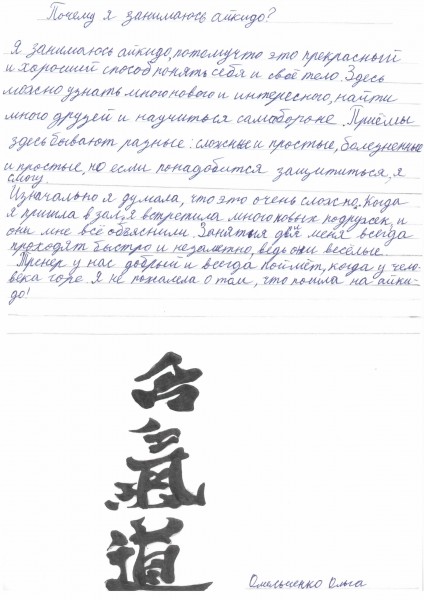 Почему я занимаюсь айкидо?
Я занимаюсь айкидо, потому что это прекрасный
и хороший способ понять себя и своё тело. Здесь
можно узнать много нового и интересного, найти
много друзей и научиться самообороне. Приёмы
здесь бывают разные: сложные и простые, болезненные
и простые, но если понадобится защититься, я
смогу.
Изначально я думала, что это очень сложно. Когда
я пришла в зал, я встретила много новых подружек, и
они мне всё объяснили. Занятия для меня всегда
проходят быстро и незаметно, ведь они весёлые.
Тренер у нас добрый и всегда поймёт, когда у чело-
века горе. Я не пожалела о том, что пошла на айки-
до!
合
氣
道
Омельченко Ольга